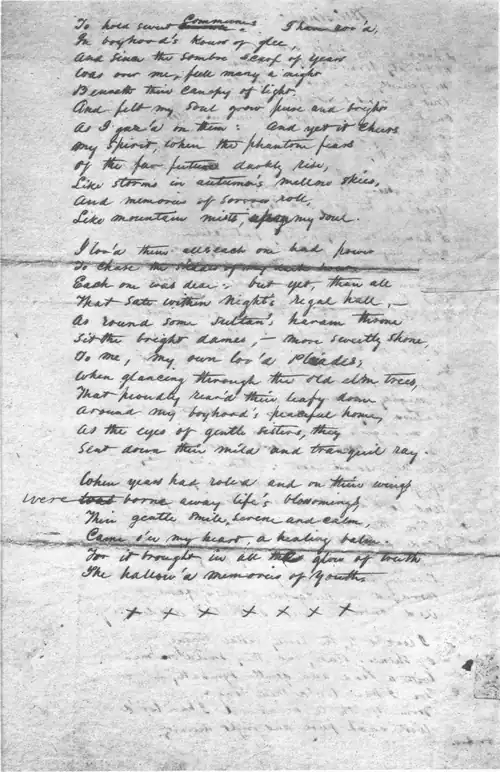 To hold sweet Commune. Them lov'd,
In boyhood's hours of glee,
And since the sombre scarf of years
Was o'er me, full many a night
Beneath their canopy of light
And felt my soul grow pure and bright
As I gaz'd on them: And yet it cheers
My spirit, when the phantom fears
Of the far future darkly rise,
Like storms in autumn's mellow skies,
And memories of sorrow roll,
Like mountain mists, my soul.
I lov'd them all each one had power
To chase the of my
Each one was dear; but yet, than all
That sate within night's regal hall, —
As round some Sultan's haram throne
Sit the bright dames, — more sweetly shone,
To me, my own lov'd Pleiades,
When glancing through the old elm trees,
That proudly rear'd their leafy dome
Around my boyhood's peaceful home,
As the eyes of gentle sisters, they
Sent down their mild and tranquil ray.
When years had roled and on their wings
were was borne away life's blossomings,
Their gentle smile, serene and calm,
Came o'er my heart, a healing balm.
For it brought in all the glow of truth
The hallow'd memories of Youth
x x x x x x x